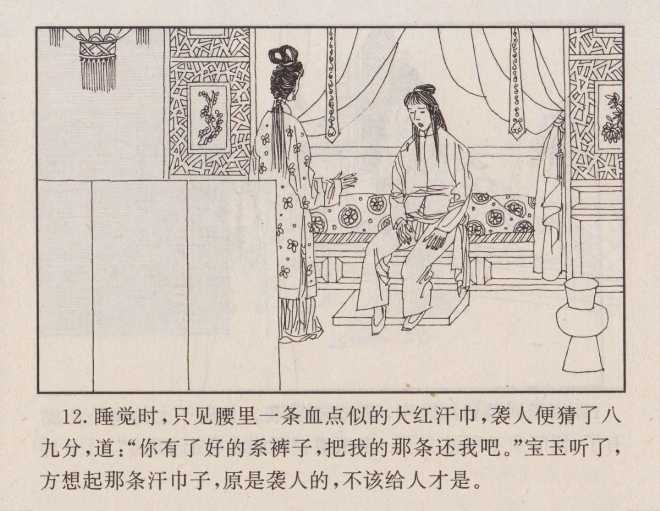 12. 睡觉时,只见腰里一条血点似的大红汗巾,袭人便猜了八
九分,道:“你有了好的系裤子,把我的那条还我吧。”宝玉听了,
方想起那条汗巾子,原是袭人的,不该给人才是。